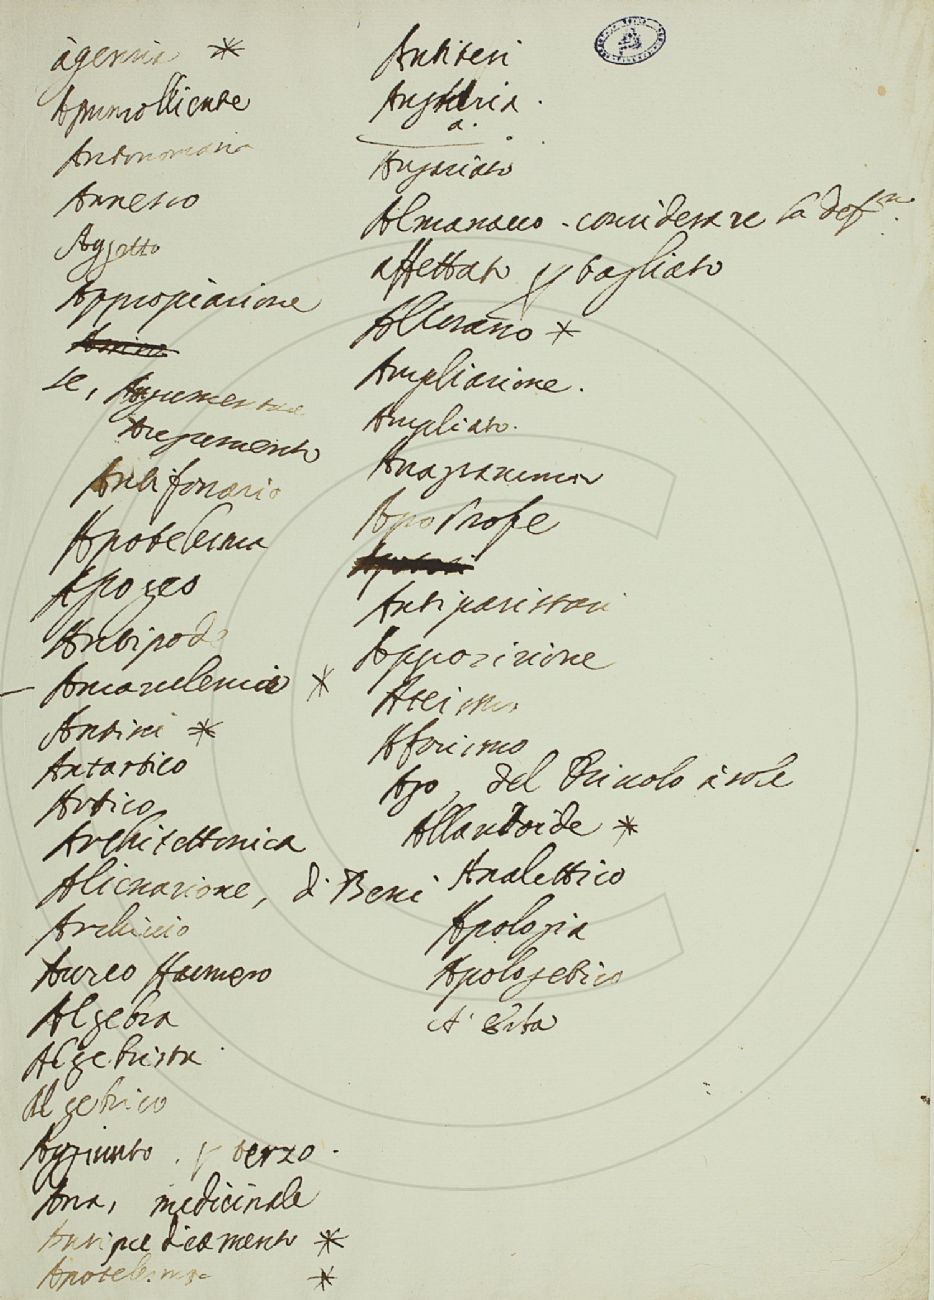 àgenzia *
Ammolliente
Antonomasia
Annesso
Aggetto
Appropiazione
se, Argumentare
Argumento
Antifonario
Apotelesma
Apogeo
Antipode
*
*
Antartico
Artico
Architettonica
Alienazione, di Beni
Archivio
Aureo Numero
Algebra
Algebrista
Algebrico
Aggiunto, p terzo.
Ana, medicinale
Antipredicamento *
Apotelesma *
Antitesi
Angheria.
a.
Angariato
Almanacco - considerare la defne.
affettato p tagliato
*
Ampliazione.
Ampliato.
Anagramma
Apostrofe
Antiparistasi
Apposizione
Ateismo
Aforismo
Apo, del
Allantoide *
Analettico
Apologia
Apologetico